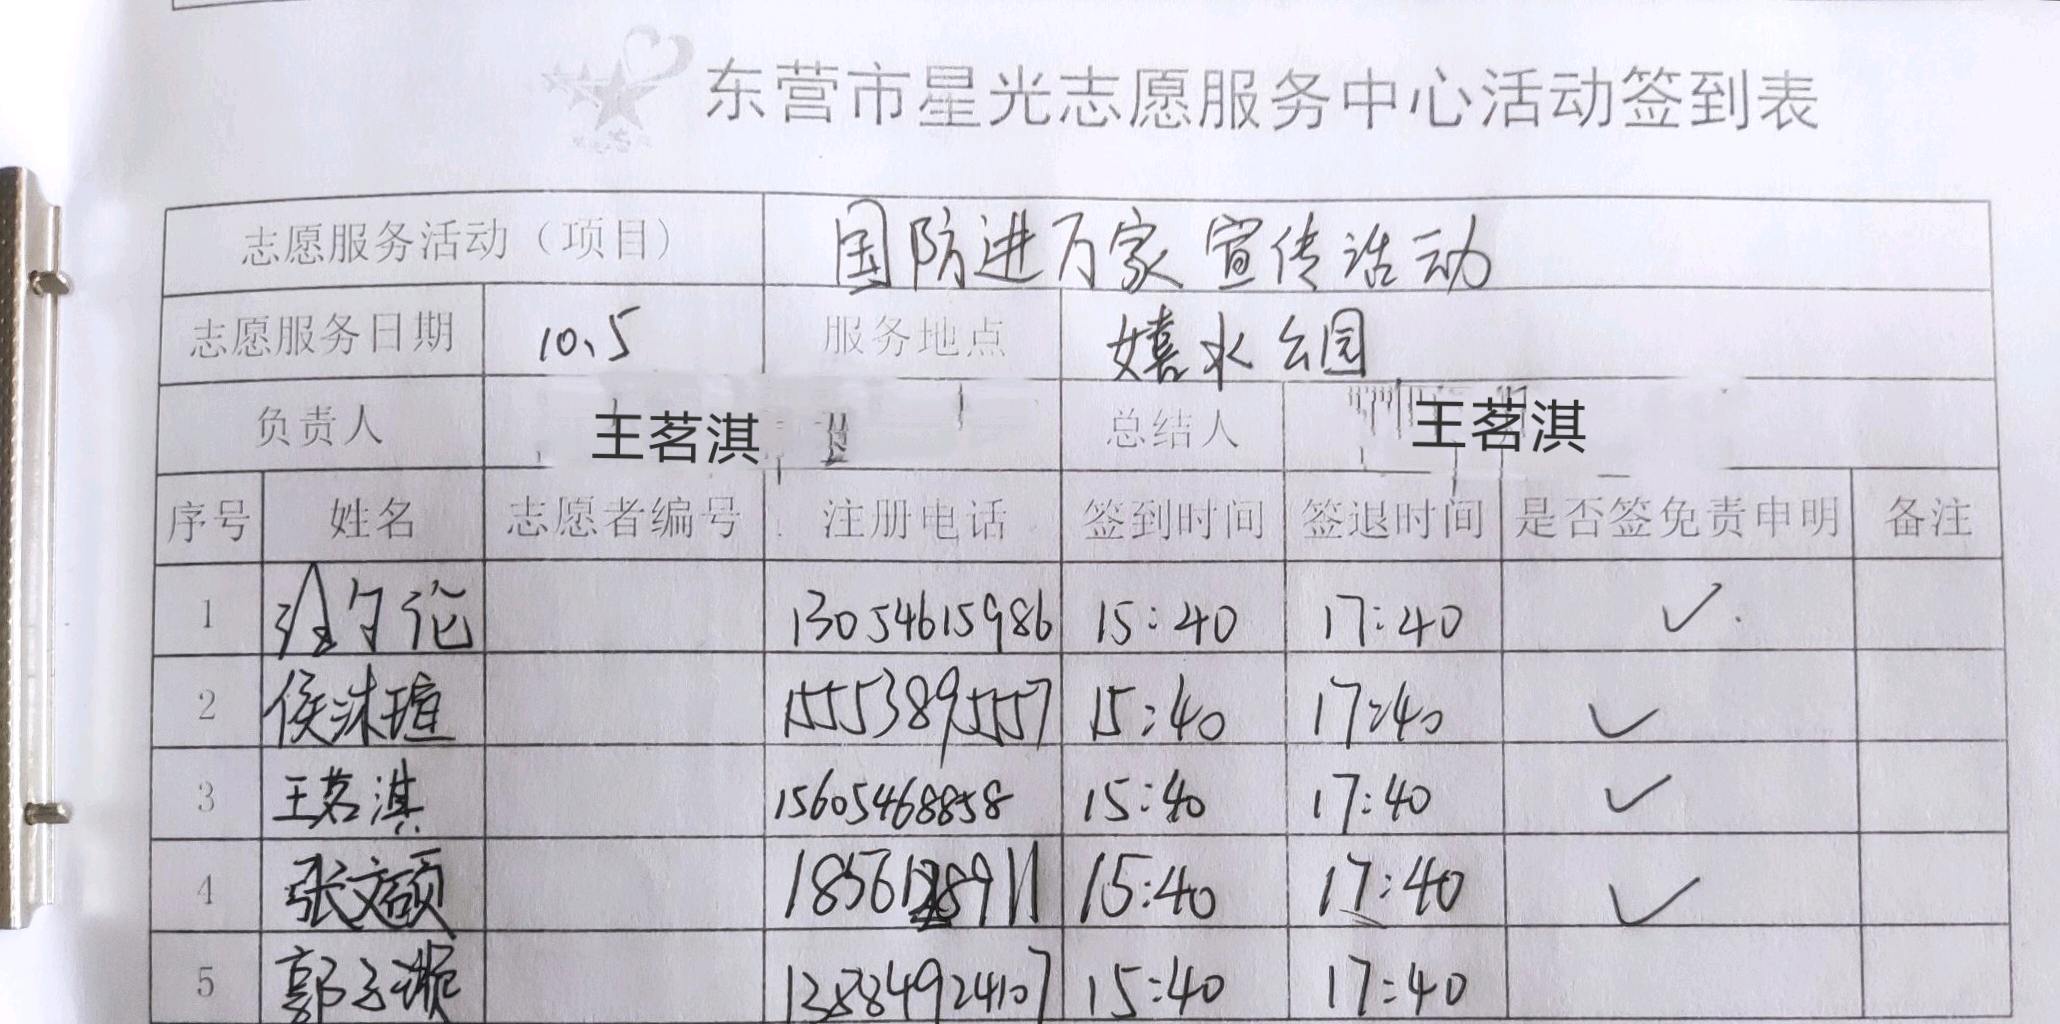 东营市星光志愿服务中心活动签到表
志愿服务活动（项目） 国防进万家宣传活动
志愿服务日期 10、5 服务地点 嬉水公园
负责人 王茗淇 总结人 王茗淇
序号 姓名 志愿者编号 注册电话 签到时间 签退时间 是否签免责申明 备注
1 13054615986 15:40 17:40 ✓
2 侯沐瑄 15553895557 15:40 17:40 ✓
3 王茗淇 15605468858 15:40 17:40 ✓
4 张文硕 15:40 17:40 ✓
5 郭子灏 15:40 17:40